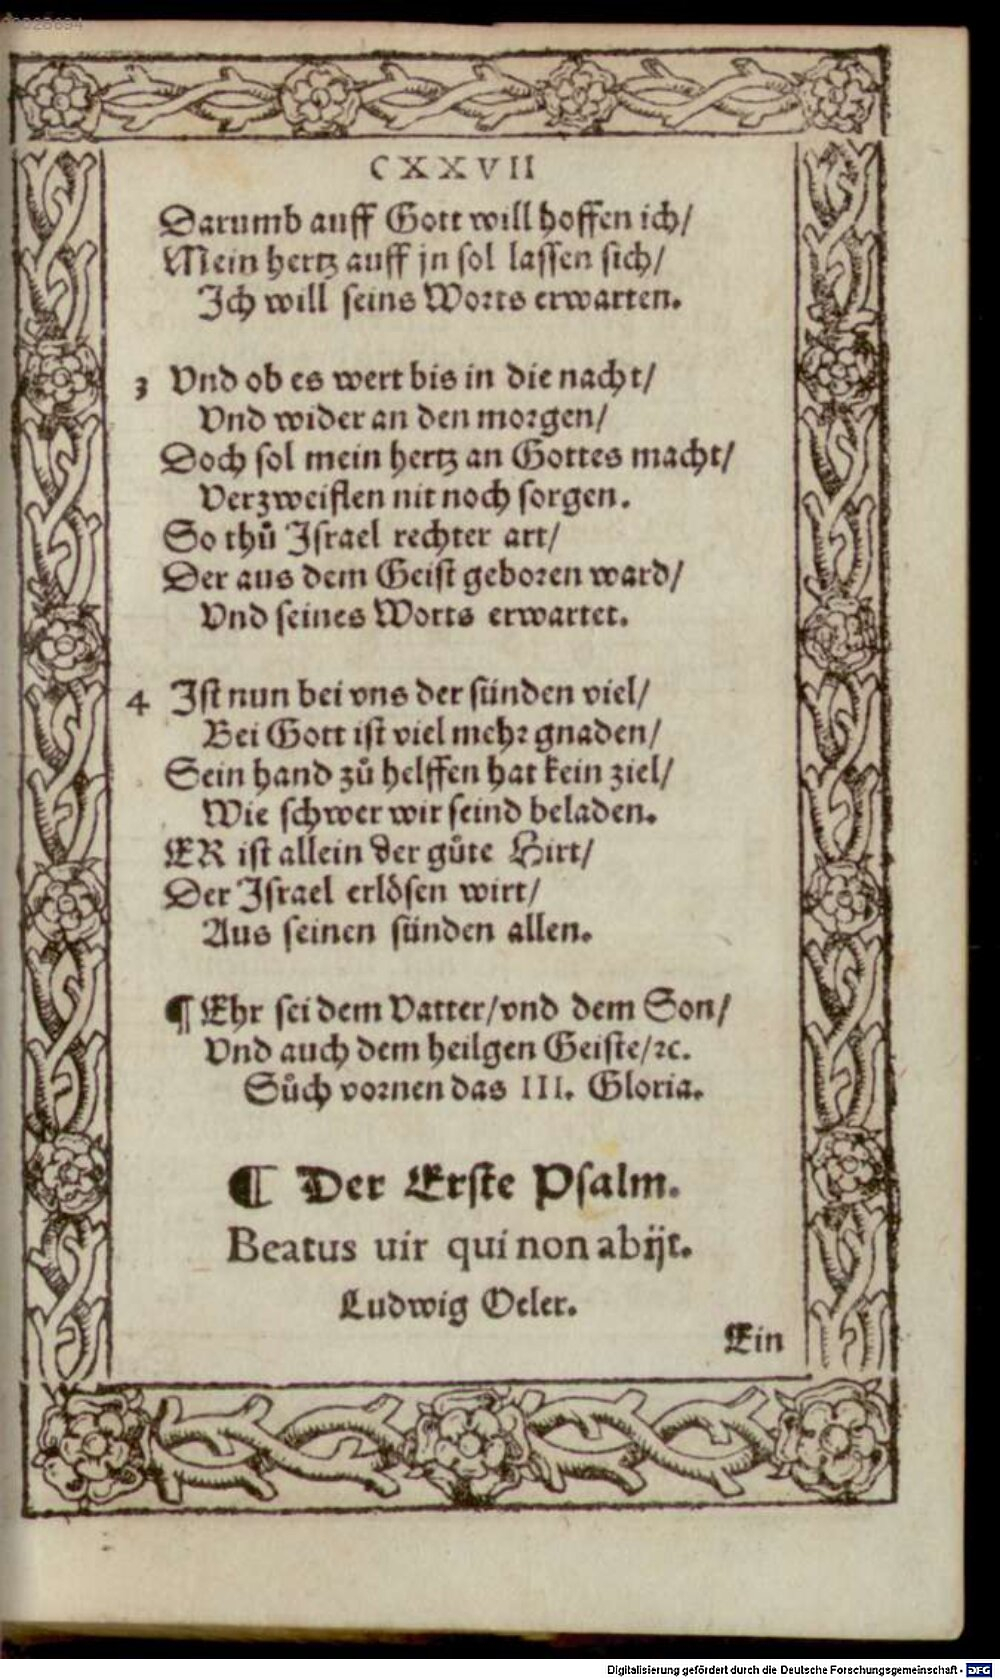 CXXVII
Darumb auff Gott will hoffen ich/
Mein hertz auff jn sol lassen sich/
Ich will seins Worts erwarten.
3 Vnd ob es wert bis in die nacht/
Vnd wider an den morgen/
Doch sol mein hertz an Gottes macht/
Verzweiflen nit noch sorgen.
So thů Israel rechter art/
Der aus dem Geist geboren ward/
Vnd seines Worts erwartet.
4 Ist nun bei vns der sünden viel/
Bei Gott ist viel mehr gnaden/
Sein hand zů helffen hat kein ziel/
Wie schwer wir seind beladen.
ER ist allein der gůte Hirt/
Der Israel erlösen wirt/
Aus seinen sünden allen.
¶ Ehr sei dem Vatter/vnd dem Son/
Vnd auch dem heilgen Geiste/ꝛc.
Sůch vornen das III. Gloria.
¶ Der Erste Psalm.
Beatus uir qui non abijt.
Ludwig Oeler.
Ein
Digitalisierung gefördert durch die Deutsche Forschungsgemeinschaft - DFG